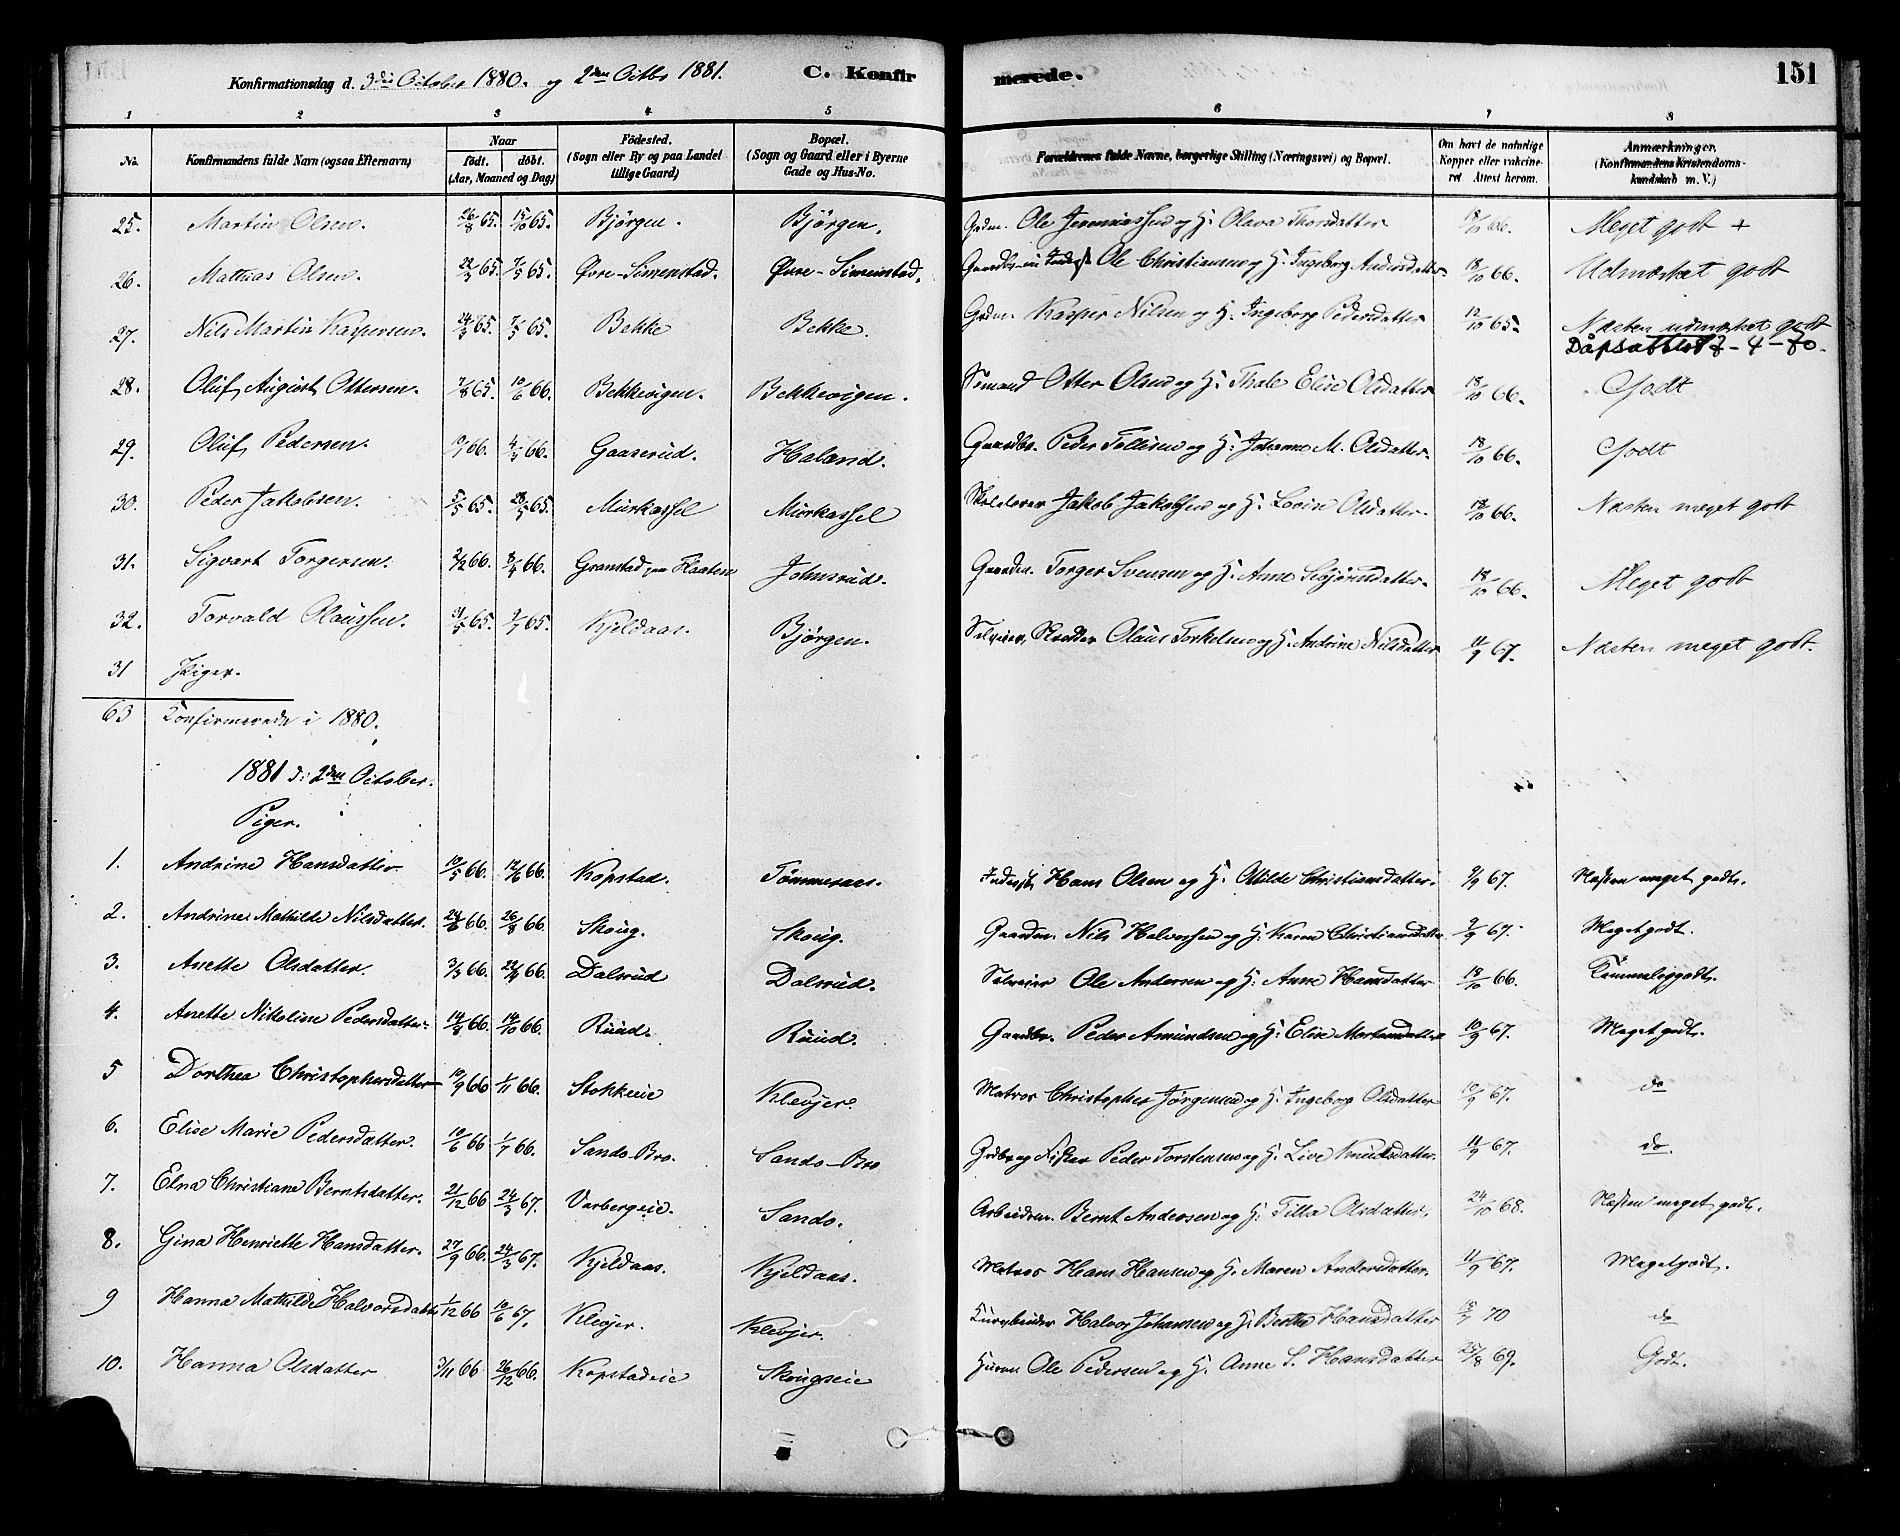 Konfirmationsdag d. 3die October 1880. og 2den Octbr 1881. C. Konfirmerede. 151
1 2 3 4 5 6 7 8
No. Konfirmandens fulde Navn (ogsaa Efternavn) Naar födt. döbt. (Aar, Maaned og Dag) Födested. (Sogn eller By og paa Landet tillige Gaard) Bopæl. (Sogn og Gaard eller i Byerne Gade og Hus-No. Forældrenes fulde Navne, borgerlige Stilling (Næringsvei) og Bopæl. Om havt de naturlige Kopper eller vakcineret Attest herom. Anmærkninger. (Konfirmandens Kristendomskundskab m. V.)
25. Martin Olsen. 26/8 65. 15/10 65. Bjørgen. Bjørgen. Gdm. Ole Jeremiassen og H. Olava Thorsdatter 18/10 66. Meget godt +
26. Mathias Olsen. 22/3 65. 7/5 65. Øvre-Simenstad. Øvre-Simenstad. Ole Christiansen og H. Ingeborg Andersdatter. 18/10 66. Udmærket godt
27. Nils Martin Kaspersen. 24/3 65. 7/5 65. Bekke Bekke. Gdm. Kasper Nilsen og H. Ingeborg Pedersdatter 12/10 65. Næsten udmærket godt
Dåpsattest - 4 - 70.
28. Oluf August Ottersen. 7/8 65. 10/6 66. Bekkevigen. Bekkevigen. Sømand Otter Olsen og H. Thale Elise Olsdatter 18/10 66. Godt
29. Oluf Pedersen. 66. 4/3 66. Gaaserud. Haland. Gaardbr. Peder Tollisen og H. Johanne M. Olsdatter. 18/10 66. Godt
30. Peder Jakobsen. 5/5 65. 28/5 65. Murkassel Murkassel Jakob Jakobsen og H. Lovise Olsdatter. 18/10 66. Næsten meget godt
31. Sigvart Torgersen. 2/2 66. 8/4 66. Granstad paa Flaaten Johnsrud. Gaardm. Torger Svensen og H. Anne Sibjørnsdatter. 18/10 66. Meget godt
32. Torvald Olaussen. 31/5 65. 9/7 65. Kjeldaas. Bjørgen. Selveier, Skrædder Olaus Torkelsen og H. Andrine Nilsdatter 11/9 67. Næsten meget godt.
31 Piger.
63 Konfirmerede i 1880.
1881 d: 2den October.
Piger.
1. Andrine Hansdatter 10/5 66. 12/6 66. Kopstad. Tømmeraas. Inderst Hans Olsen og H. Otilde Christiansdatter. 9/9 67. Næsten meget godt.
2. Andrine Mathilde Nilsdatter. 66. 26/8 66. Skoug. Skoug. Gaardm. Nils Halvorsen og H. Karen Christiansdatter 9/9 67. Meget godt.
3. Anette Olsdatter. 3/3 66. 66. Dalsrud Dalsrud. Selveier Ole Andersen og H. Anne Hansdatter 18/10 66. Temmelig godt.
4. Anette Nikoline Pedersdatter. 14/8 66. 14/10 66. Ruud. Ruud. Gaardbr. Peder Amundsen og H. Elise Martensdatter 10/9 67. Meget godt.
5 Dorthea Christophersdatter 10/9 66 1/11 66. Stokkeie Klevjer. Matros Christopher Jørgensen og H. Ingeborg Olsdatter 10/9 67. do
6. Elise Marie Pedersdatter. 10/6 66 1/7 66. Sando-Bro. Sando-Bro Gdbr og Fisker Peder Torstensen og H. Live Knudsdatter. 11/9 67. do.
7. Elna Christiane Berntsdatter. 21/12 66 24/3 67. Varbergeie. Sando. Arbeidsm. Bernt Andersen og H. Tilla Olsdatter. 24/10 68. Næsten meget godt.
8. Gina Henriette Hansdatter. 27/9 66. 24/3 67. Kjeldaas. Kjeldaas. Matros Hans Hansen og H. Maren Andersdatter. 11/9 67. Meget godt.
9 Hanna Mathilde Halvorsdatter 1/12 66 10/6 67. Klevjer. Klevjer. Halvor Johansen og H. Berthe Hansdatter 70 do
10. Hanna Olsdatter 3/11 66 26/12 66. Kopstadeie Skougseie Husm. Ole Pedersen og H. Anne S. Hansdatter 25/8 69. Godt.